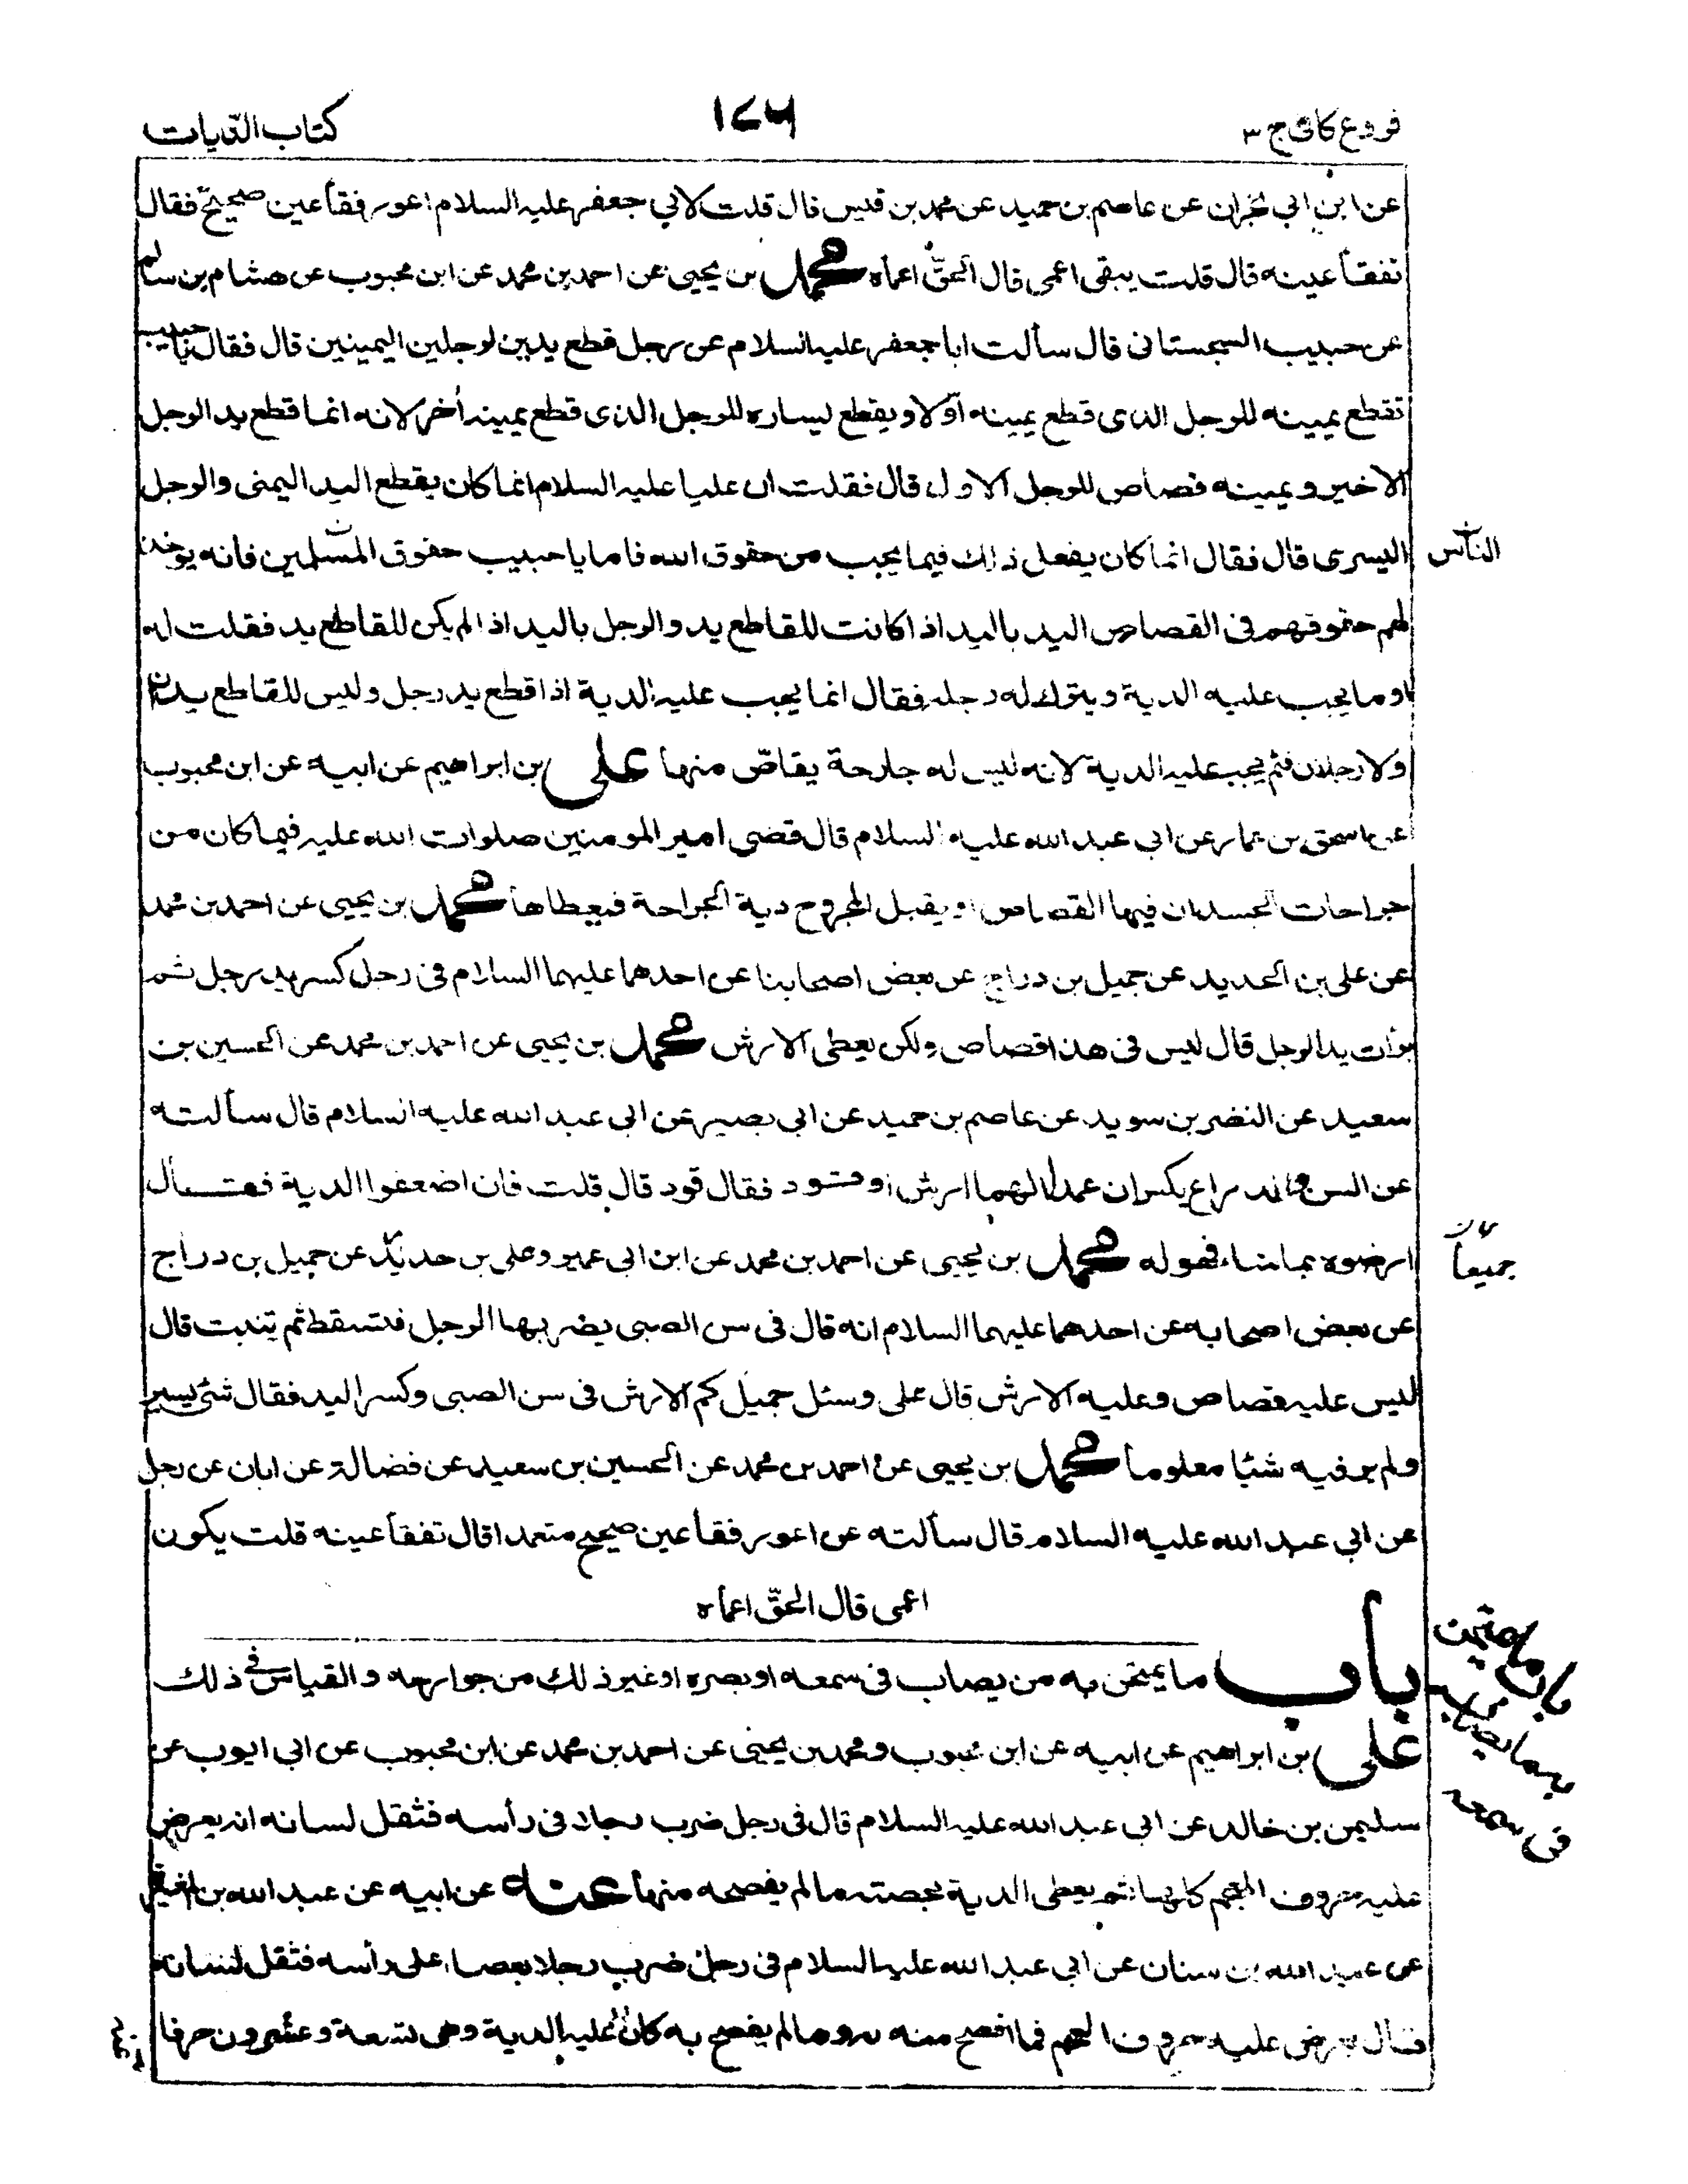 فروع كافى ج ٣
١٧٦
كتاب الدّيات
عن ابن ابي نجران عن عاصم بن حميد عن محمد بن قيس قال قلت لابي جعفر عليه السلام اعور فقأ عين صحيح فقال
تفقأ عينه قال قلت يبقى اعمى قال الحقّ اعماه محمد بن يحيى عن احمد بن محمد عن ابن محبوب عن هشام بن سالم
عن حبيب السجستانى قال سألت ابا جعفر عليه السلام عن رجل قطع يدين لرجلين اليمينين قال فقال يا حبيب
تقطع يمينه للرجل الذى قطع يمينه اوّلا ويقطع يساره للرجل الذى قطع يمينه أخر لانه انما قطع يد الرجل
الاخير ويمينه قصاص للرجل الاول قال فقلت ان عليا عليه السلام انما كان يقطع اليد اليمنى والرجل
اليسرى قال فقال انما كان يفعل ذلك فيما يجب من حقوق الله فاما يا حبيب حقوق المسلمين فانه يوخذ
الناس
لهم حقوقهم فى القصاص اليد باليد اذا كانت للقاطع يد والرجل باليد اذا لم يكن للقاطع يد فقلت له
او ما يجب عليه الدية ويترك له رجله فقال انما يجب عليه الدية اذا قطع يد رجل وليس للقاطع يدان
ولا رجلان فثم يجب عليه الدية لانه ليس له جارحة يقاصّ منها على بن ابراهيم عن ابيه عن ابن محبوب
عن اسحق بن عمار عن ابي عبد الله عليه السلام قال قضى امير المومنين صلوات الله عليه فيما كان من
جراحات الجسد ان فيها القصاص او يقبل المجروح دية الجراحة فيعطاها محمد بن يحيى عن احمد بن محمد
عن على بن الحديد عن جميل بن دراج عن بعض اصحابنا عن احدهما عليهما السلام فى رجل كسر يد رجل ثم
برأت يد الرجل قال ليس فى هذا قصاص ولكن يعطى الارش محمد بن يحيى عن احمد بن محمد عن الحسين بن
سعيد عن النضر بن سويد عن عاصم بن حميد عن ابي بصير عن ابي عبد الله عليه السلام قال سألته
عن السن والذراع يكسران عمدا لهما ارش او قود فقال قود قال قلت فان اضعفوا الدية فقال
ارضوه بما شاء فهو له محمد بن يحيى عن احمد بن محمد عن ابن ابي عمير وعلى بن حديد عن جميل بن دراج
جميعاً
عن بعض اصحابه عن احدهما عليهما السلام انه قال فى سن الصبى يضربها الرجل فتسقط ثم تنبت قال
ليس عليه قصاص وعليه الارش قال على وسئل جميل كم الارش فى سن الصبى وكسر اليد فقال شئ يسير
ولم ير فيه شيئا معلوما محمد بن يحيى عن احمد بن محمد عن الحسين بن سعيد عن فضالة عن ابان عن رجل
عن ابي عبد الله عليه السلام قال سألته عن اعور فقأ عين صحيح متعمدا قال تفقأ عينه قلت يكون
اعمى قال الحقّ اعماه
باب ما يمتحن به من يصاب فى سمعه او بصره او غير ذلك من جوارحه والقياس فى ذلك
على بن ابراهيم عن ابيه عن ابن محبوب ومحمد بن يحيى عن احمد بن محمد عن ابن محبوب عن ابي ايوب عن
سليمن بن خالد عن ابي عبد الله عليه السلام قال فى رجل ضرب رجلا فى رأسه فثقل لسانه انه يعرض
عليه حروف المعجم كلها ثم يعطى الدية بحصته ما لم يفصحه منها عنه عن ابيه عن عبد الله بن المغيرة
عن عبد الله بن سنان عن ابي عبد الله عليه السلام فى رجل ضرب رجلا بعصا على رأسه فثقل لسانه
فقال يعرض عليه حروف المعجم فما افصح منه وما لم يفصح به كان عليه الدية وهى تسعة وعشرون حرفا